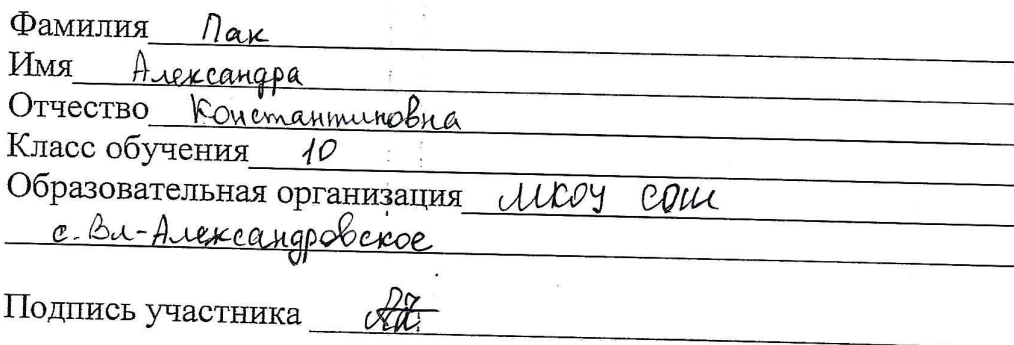 Фамилия Пак
Имя Александра
Отчество Константиновна
Класс обучения 10
Образовательная организация МКОУ СОШ
с. Вл-Александровское
Подпись участника